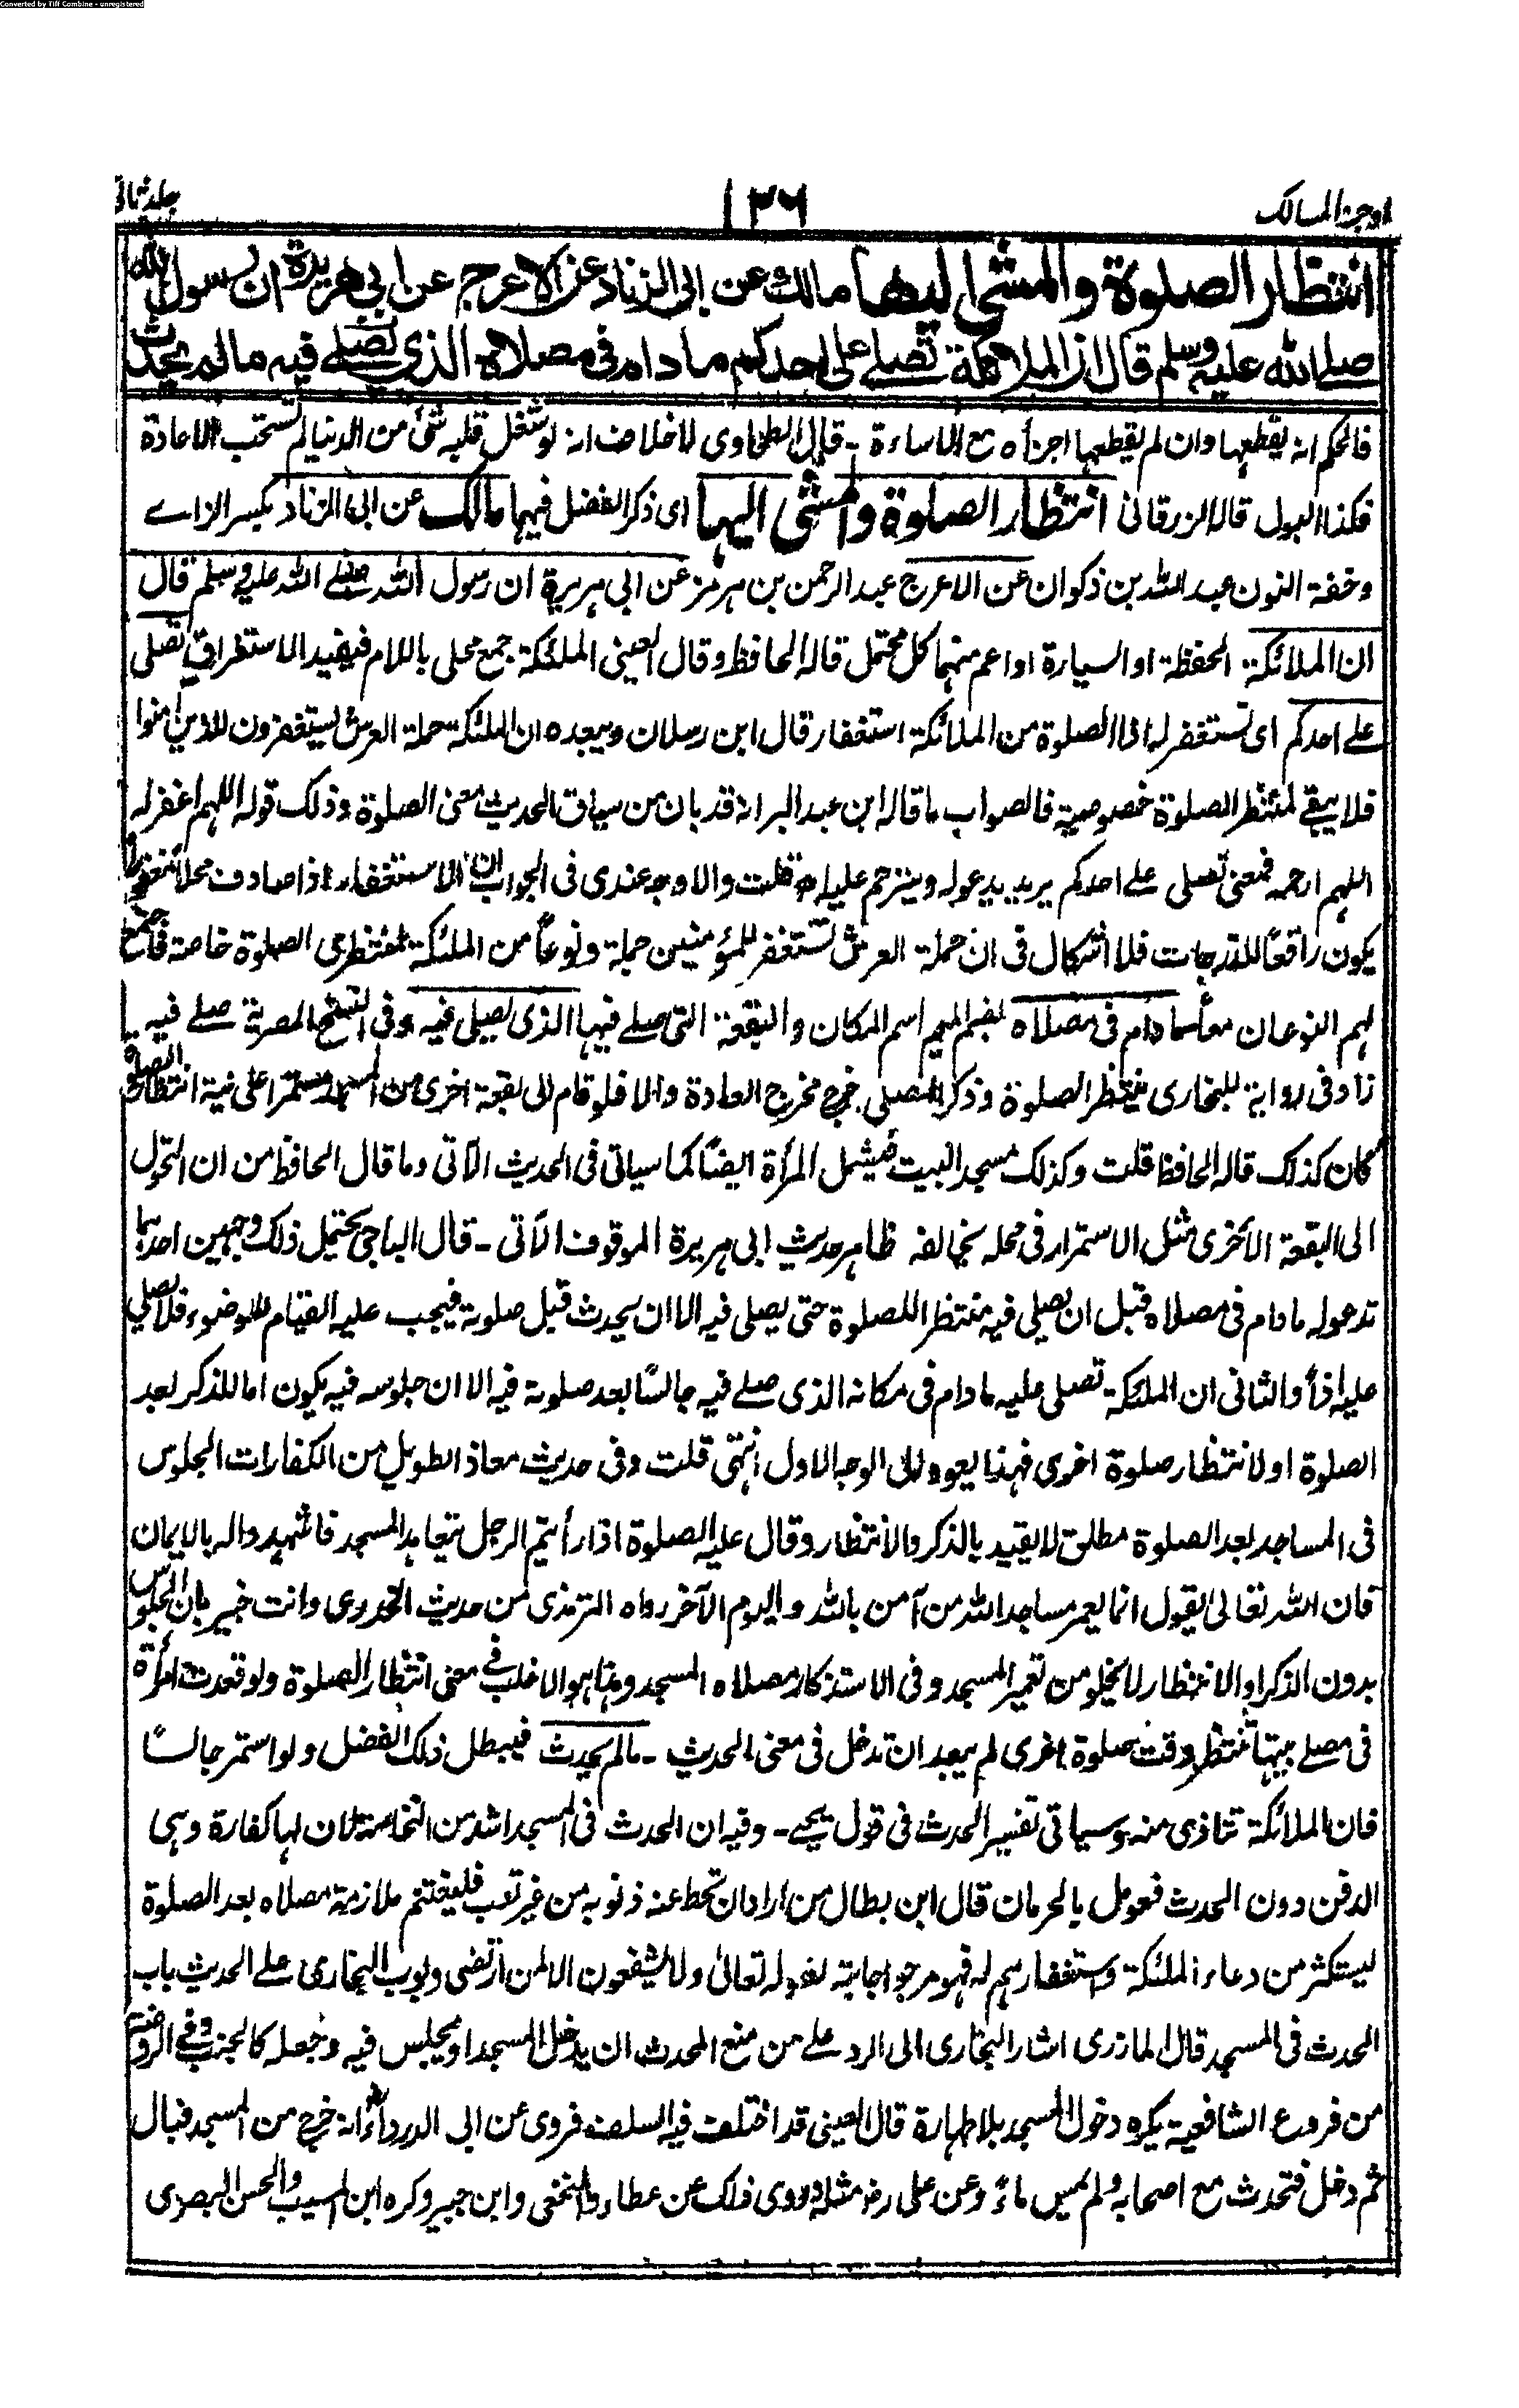 Converted by Tiff Combine - unregistered
اوجز المسالك
١٣٦
جلد ثانی
انتظار الصلوة والمشي اليها مالك عن ابى الزناد عن الاعرج عن ابى هريرة ان رسول الله
صلے الله عليه وسلم قال ان الملائكة تصلے على احدكم ما دام فى مصلاه الذي تصلے فيه مالم يحدث
فالحكم انه يقطعها وان لم يقطعها اجزأه مع الاساءة ـ قال الطحاوى لاخلاف انه لو شغل قلبه شئ من الدنيا لم تستحب الاعادة
فكذا البول قاله الزرقانى انتظار الصلوة والمشى اليها اى ذكر الفضل فيهما مالك عن ابى الزناد بكسر الزاے
وخفة النون عبد الله بن ذكوان عن الاعرج عبد الرحمن بن هرمز عن ابى هريرة ان رسول الله صلے الله عليه وسلم قال
ان الملائكة الحفظة او السيارة او اعم منهما كل محتمل قاله الحافظ وقال العينى الملئكة جمع محلى باللام فيفيد الاستغراق تصلى
علے احدكم اى تستغفر له اذ الصلوة من الملائكة استغفار قال ابن رسلان ويبعده ان الملئكة حملة العرش يستغفرون للذين امنوا
فلا يبقے لمنتظر الصلوة خصوصية فالصواب ما قاله ابن عبد البر انه قد بان من سياق الحديث معنى الصلوة وذلك قوله اللهم اغفر له
اللهم ارحمه فمعنى تصلى علے احدكم يريد يدعو له ويترحم عليه اھ قلت والاوجه عندى فى الجواب ان الاستغفار اذا صادف محلا مغفورا
يكون رافعا للدرجات فلا اشكال فى ان حملة العرش تستغفر للمؤمنين جملة ونوعاً من الملئكة لمنتظرى الصلوة خاصة فاجتمع
لهم النوعان معاً ما دام فى مصلاه بضم الميم اسم المكان والبقعة التى صلے فيها الذى يصلى فيه وفى النسخ المصرية صلے فيه
زاد فى رواية للبخارى ينتظر الصلوة وذكر المصلى خرج مخرج العادة والا فلو قام الى بقعة اخرى من المسجد مستمرا على نية انتظار الصلوة
كان كذلك قاله الحافظ قلت وكذلك مسجد البيت فيشمل المرأة ايضاً كما سياتى فى الحديث الآتى وما قال الحافظ من ان التحول
الى البقعة الاخرى مثل الاستمرار فى محله يخالفه ظاهر حديث ابى هريرة الموقوف الآتى ـ قال الباجى يحتمل ذلك وجهين احدهما
تدعو له ما دام فى مصلاه قبل ان يصلى فيه منتظرا للصلوة حتى يصلى فيه الا ان يحدث قبل صلوته فيجب عليه القيام للوضوء فلا تصلي
عليه اذاً والثانى ان الملئكة تصلى عليه ما دام فى مكانه الذى صلے فيه جالساً بعد صلوته فيه الا ان جلوسه فيه يكون اما للذكر بعد
الصلوة او لانتظار صلوة اخرى فهذا يعود الى الوجه الاول انتهى قلت وفى حديث معاذ الطويل من الكفارات الجلوس
فى المساجد بعد الصلوة مطلق لا يقيد بالذكر والانتظار وقال عليه الصلوة اذا رأيتم الرجل يتعاهد المسجد فاشهدوا له بالايمان
فان الله تعالى يقول انما يعمر مساجد الله من آمن بالله واليوم الآخر رواه الترمذى من حديث الخدرى وانت خبير بان الجلوس
بدون الذكر او الانتظار لا يخلو من تعمير المسجد وفى الاستذكار مصلاه المسجد وهذا هو الاغلب فى معنى انتظار الصلوة ولو قعدت امرأة
فى مصلے بيتها تنتظر وقت صلوة اخرى لم يبعد ان تدخل فى معنى الحديث ـ مالم يحدث فيبطل ذلك الفضل ولو استمر جالساً
فان الملائكة تتاذى منه وسياتى تفسير الحدث فى قول يحيے ـ وفيه ان الحدث فى المسجد اشد من النخامة لان لها كفارة وهى
الدفن دون الحدث فعومل بالحرمان قال ابن بطال من اراد ان تحط عنه ذنوبه من غير تعب فليغتنم ملازمة مصلاه بعد الصلوة
ليستكثر من دعاء الملئكة واستغفارهم له فهو مرجو اجابته لقوله تعالى ولا يشفعون الا لمن ارتضى وبوب البخارى علے الحديث باب
الحدث فى المسجد قال المازرى اشار البخارى الى الرد علے من منع المحدث ان يدخل المسجد او يجلس فيه وجعله كالجنب وفى الروضة
من فروع الشافعية يكره دخول المسجد بلا طهارة قال العينى قد اختلف فيه السلف فروى عن ابى الدرداء انه خرج من المسجد فبال
ثم دخل فتحدث مع اصحابه ولم يمس ماءً وعن على رضـ مثله وروى ذلك عن عطاء والنخعى وابن جبير وكره ابن المسيب والحسن البصرى